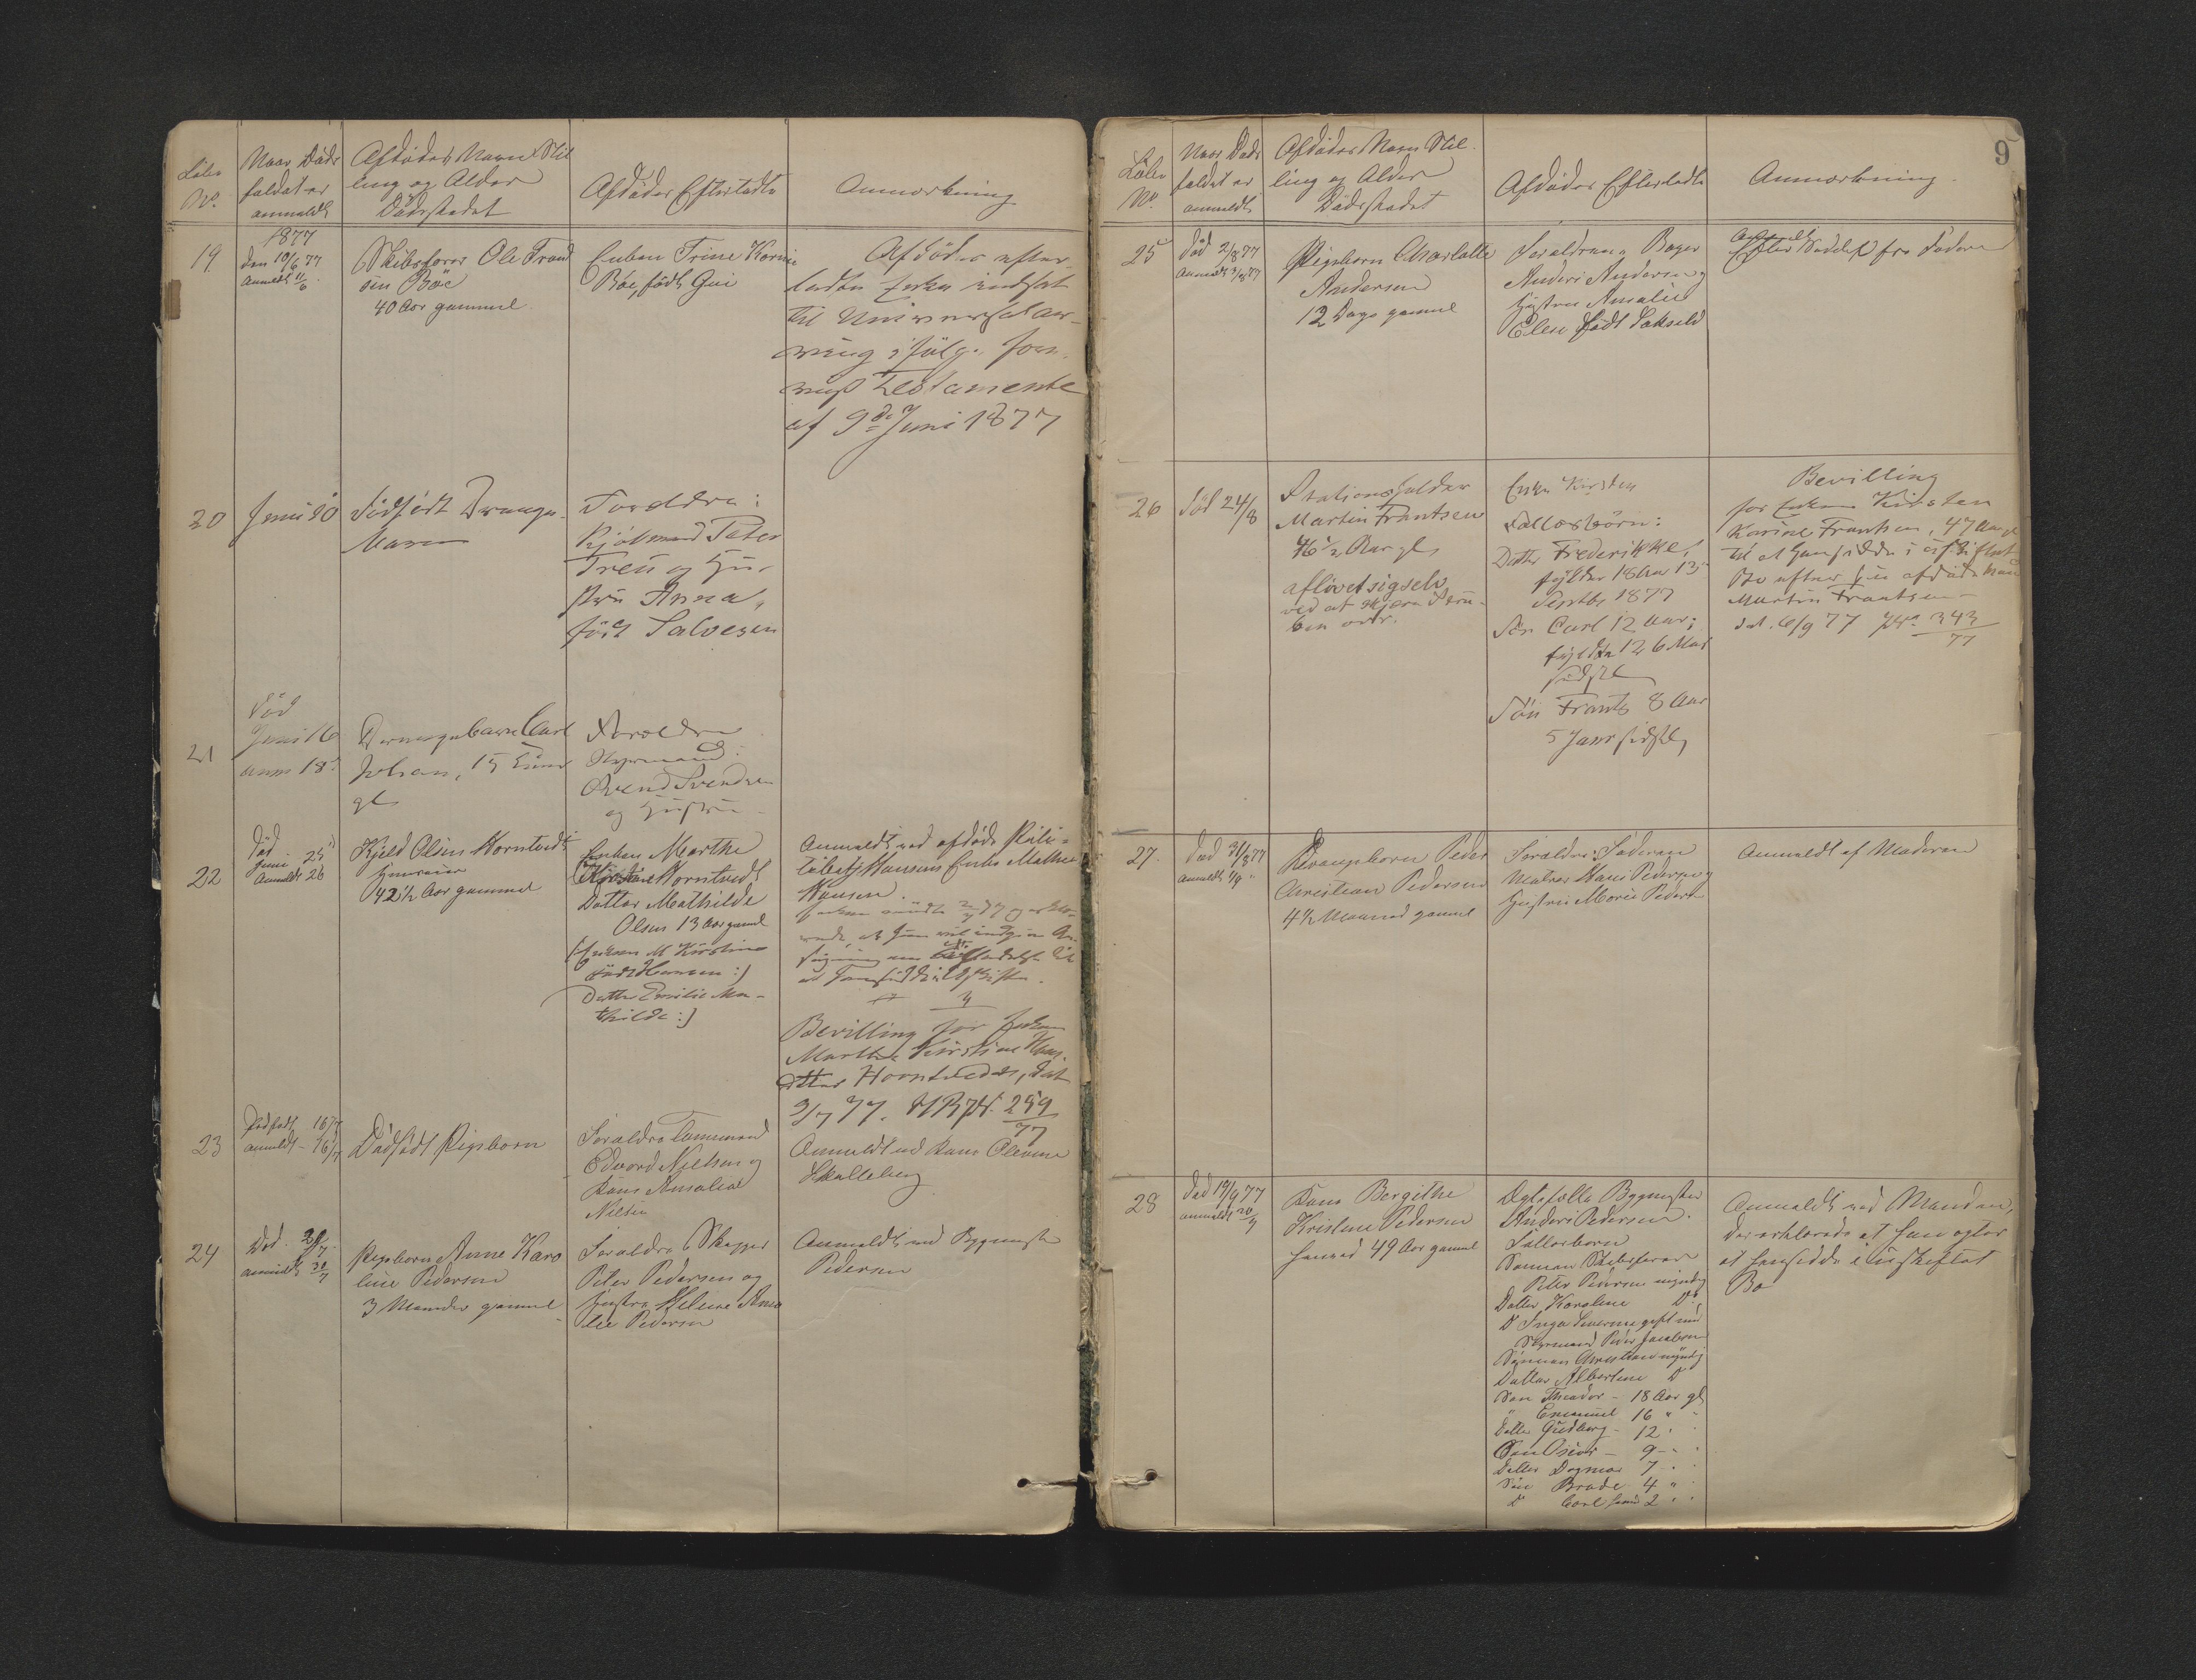 Löbe
No.
Naar Döds
faldet er
anmeldt
Afdödes Navn Stil
ling og Alder
Dödsstedet
Afdödes Efterladte
Anmærkning
19
1877
den 10/6 77
Anmeldt 11/6
Skibsförer Ole Trand
sen Böe
40 Aar gammel
Enken Trine Karine
Böe, födt
Afdödes efter-
ladte Enke indsat
til Universalar-
ving ifölge for-
Testamente
af 9de Juni 1877
20
Juni 10
Dödfödt Drenge-
Forældre:
Peter
Treu og Hu-
stru Anna,
födt Salvesen
21
Död
Juni 16
anm 18
Drengebarn Carl
Johan, 15
gl
Forældre
Styrmand
Svendsen
og Hustru
22
Död
Juni 25
Anmeldt 26
Kjeld Olsen Horntvedt
42 1/2 Aar gammel
Enken Marthe
Kirstine Horntvedt
Datter Mathilde
Olsen 13 Aar gammel
(: Enken M Kirstine
född Hansen :)
Datter Emilie Ma-
thilde :)
Anmeldt ved afdöde
Hansens Enke Mathea
Hansen.
Enken mödte 2/7 77 og erklæ-
rede, at hun vil indgive An-
sögning om Tilladelse til
Bevilling for Enken
Marthe Kirstine Hans-
datter Horntvedt, dat
3/7 77. No. 259/77
23
Dödfödt 16/7
anmeldt 16/7
Dödfödt Pigebarn
Forældre Tömmermand
Edvard Nielsen og
Kone Amalie
Nielsen
Anmeldt ved Kone Olevine
Skalleberg
24
Död
anmeldt 30/7
Pigebarn Anne Karo
line Pedersen
3 Maaneder gammel
Forældre Skipper
Peter Pedersen og
Hustru Helene Ama
lie Pedersen
Anmeldt ved Bygmester
Pedersen
9
Löbe
No.
Naar Döds
faldet er
anmeldt
Afdödes Navn Stil-
ling og Alder
Dödsstedet
Afdödes Efterladte
Anmærkning
25
Död 2/8 77
Pigebarn Charlotte
Andersen
12 Dage gammel
Forældrene Bager
Anders Andersen og
Hustru Amalie
Elese födt
Efter Seddel fra Faderen
26
Död 24/8
Stationsholder
Martin Frantsen
46 1/2 Aar gl,
aflivet sigselv
ved at skjære Stru-
ben over.
Enke Kirsten
Fællesbörn:
Datter Frederikke,
fylder 18 Aar 13
Septbr 1877
Sön Carl 12 Aar;
fyldte 12 6 Mai
sidstl
Sön Frants 8 Aar
5 Janr sidstl,
Bevilling
for Enken Kirsten
Karine Frantsen, 47 Aar gl
til at hensidde i uskiftet
Bo efter sin afdöde Mand
Martin Frantsen
dat. 6/9 77 No. 343/77
27.
Död 31/8 77
anmeldt 1/9
Drengebarn Peder
Christian Pedersen
4 1/2 Maaned gammel
Forældre: Faderen
Matros Hans Pedersen og
Hustru Marie Pedersen
Anmeldt af Moderen
28
Död 19/9 77
anmeldt 20/9
Kone Bergithe
Kristine Pedersen
49 Aar gammel
Ægtefælle Bygmester
Anders Pedersen.
Fællesbörn
Sönnen Skibsförer
Peter Pedersen myndig
Datter Karoline Do
Do Inga Severine gift med
Styrmand Peder Jacobsen
Sönnen Christian myndig
Datter Albertine Do
Sön Theodor - 18 Aar gl
" Emanuel 16 "
Datter Gudborg - 12 "
Sön Oscar - 9 - "
Datter Dagmar 7 - "
Sön Brade 4 "
Do Carl 2 "
Anmeldt ved Manden,
der erklærede at han agter
at hensidde i uskiftet
Bo